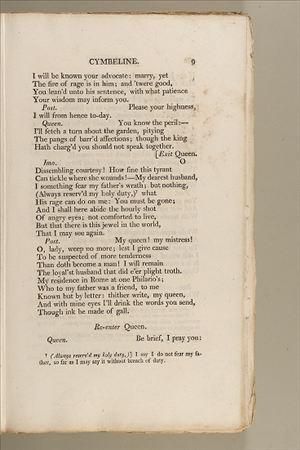 CYMBELINE. 9
I will be known your advocate: marry, yet
The fire of rage is in him; and 'twere good,
You lean'd unto his sentence, with what patience
Your wisdom may inform you.
Post. Please your highness,
I will from hence to-day.
Queen. You know the peril:—
I'll fetch a turn about the garden, pitying
The pangs of barr'd affections; though the king
Hath charg'd you should not speak together.
[Exit Queen.
Imo. O
Dissembling courtesy! How fine this tyrant
Can tickle where she wounds!—My dearest husband,
I something fear my father's wrath; but nothing,
(Always reserv'd my holy duty,)¹ what
His rage can do on me: You must be gone;
And I shall here abide the hourly shot
Of angry eyes; not comforted to live,
But that there is this jewel in the world,
That I may see again.
Post. My queen! my mistress!
O, lady, weep no more; lest I give cause
To be suspected of more tenderness
Than doth become a man! I will remain
The loyal'st husband that did e'er plight troth.
My residence in Rome at one Philario's;
Who to my father was a friend, to me
Known but by letter: thither write, my queen,
And with mine eyes I'll drink the words you send,
Though ink be made of gall.
Re-enter Queen.
Queen. Be brief, I pray you:
¹ (Always reserv'd my holy duty,)] I say I do not fear my fa-
ther, so far as I may say it without breach of duty.